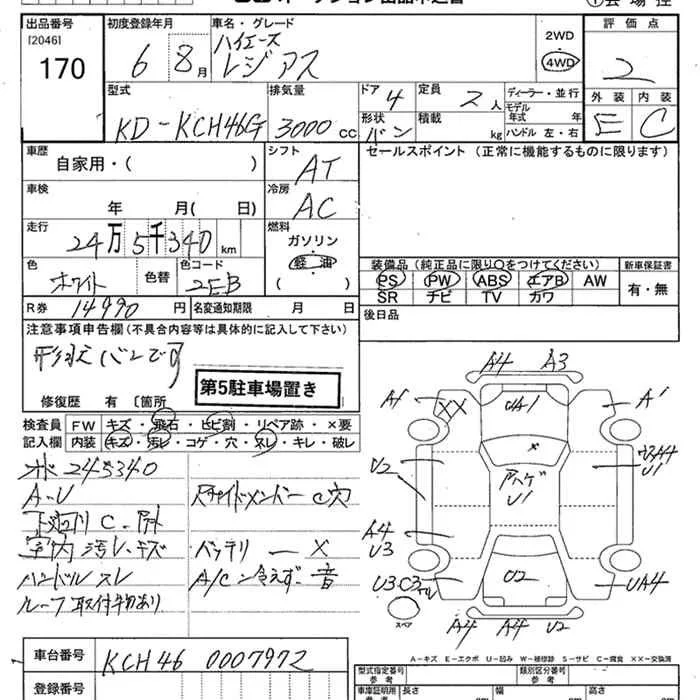 出品番号
[2046]
170
初度登録年月
6 8月
車名・グレード
ハイエース
レジアス
2WD
4WD
評価点
2
型式
KD-KCH46G
排気量
3000cc
ドア
4
定員
2人
形状
バン
積載
kg
ディーラー・並行
モデル年式 年
ハンドル 左・右
外装 内装
E C
車歴
自家用・( )
シフト
AT
車検
年 月( 日)
冷房
AC
セールスポイント (正常に機能するものに限ります)
走行
24万5千340km
燃料
ガソリン
軽油
( )
色
ホワイト
色替
色コード
2EB
装備品 (純正品に限り○をつけてください)
PS PW ABS エアB AW
SR ナビ TV カワ
新車保証書
有・無
R券
14990円
名変通知期限 月 日
後日品
注意事項申告欄 (不具合内容等は具体的に記入して下さい)
形状バンです
第5駐車場置き
修復歴 有 〔箇所
検査員記入欄
FW キズ・飛石・ヒビ割・リペア跡・×要
内装 キズ・汚レ・コゲ・穴・スレ・キレ・破レ
245340
A-U
下廻り C
室内 汚レ・キズ
ハンドル スレ
ルーフ 取付物あり
C穴
バッテリー ×
A/C 冷えず 音
A4 A3
A1
XX
UA1
A'
U2
×
U1
U1
A4
U3
U3 C3
U2
UA4
スペア
A4 A4 U2
A-キズ E-エクボ U-凹み W-補修跡 S-サビ C-腐食 XX-交換済
車台番号
KCH46 0007972
登録番号
型式指定番号
参考
類別区分番号
参考
車庫証明用
参考
長さ
幅
高さ